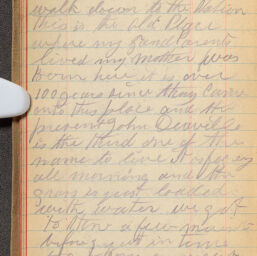 walk down to the Station
this is the old Place
where my Grand Parents
lived my Mother was
born here it is over
100 years since they came
onto this place and the
present John Deaville
is the third one of the
name to live it is foggy
all morning and the
grass is just loaded
with water we got
to the a few
before